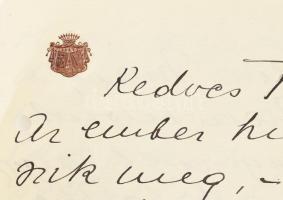 Kedves
Az ember
szik meg, -